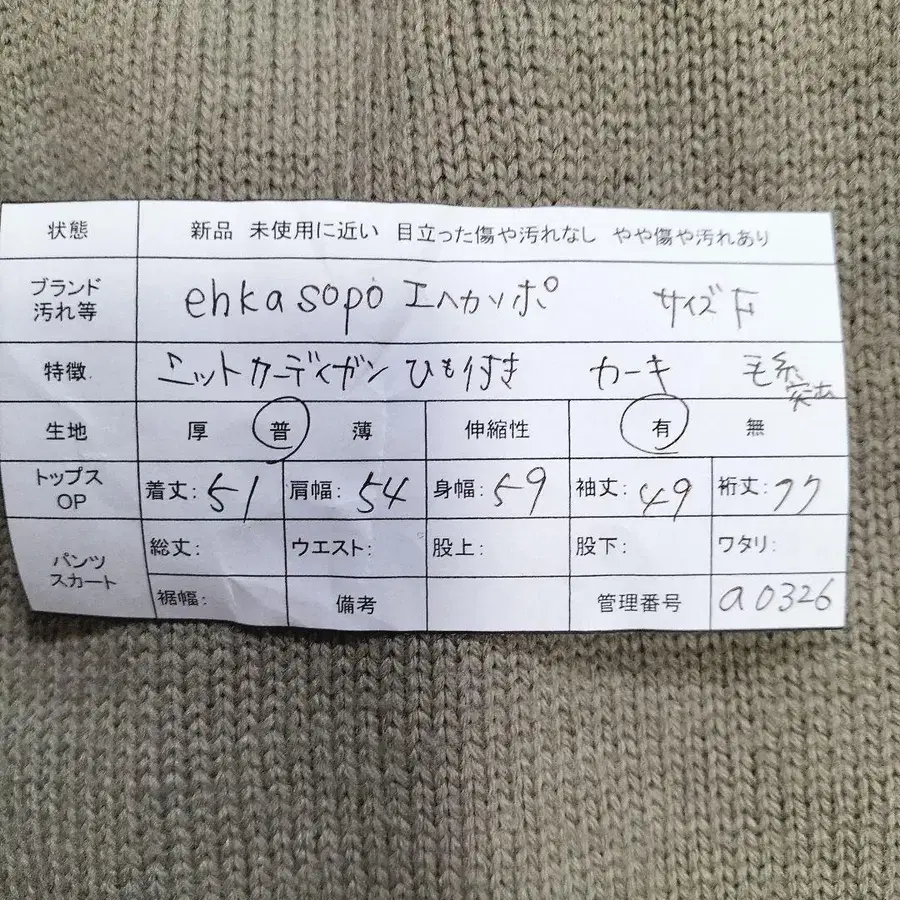 状態 新品 未使用に近い 目立った傷や汚れなし やや傷や汚れあり
ブランド
汚れ等 ehka sopo エヘカソポ サイズF
特徴. ニットカーディガン ひも付き カーキ 毛糸
生地 厚 普 薄 伸縮性 有 無
トップス
OP 着丈: 51 肩幅: 54 身幅: 59 袖丈: 49 裄丈: 77
パンツ
スカート 総丈: ウエスト: 股上: 股下: ワタリ:
裾幅: 備考 管理番号 a0326